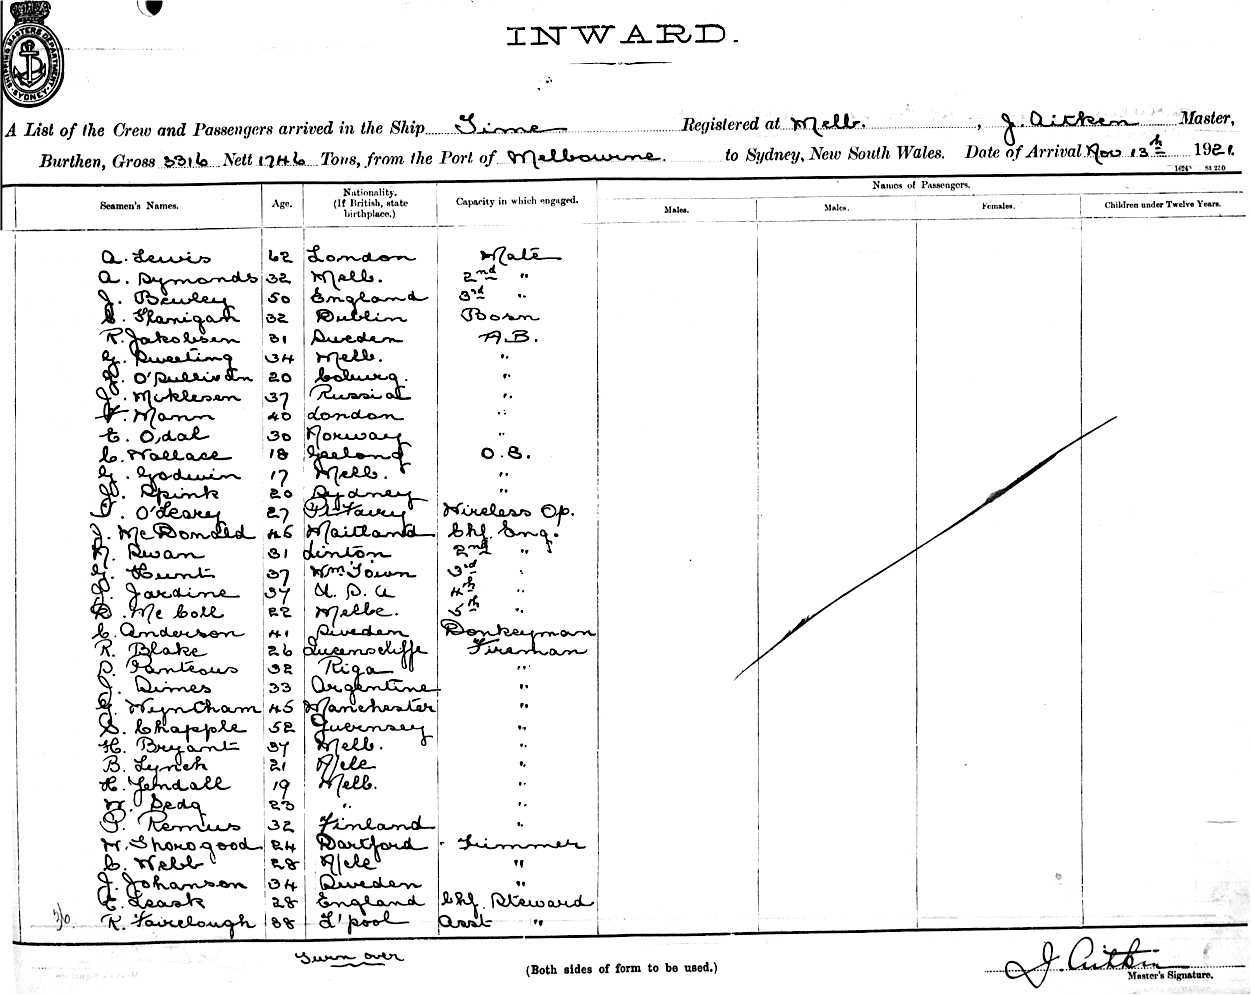 SHIPPING MASTERS DEPARTMENT SYDNEY
INWARD.
A List of the Crew and Passengers arrived in the Ship Time Registered at Melb. , J. Aitken Master,
Burthen, Gross 3316 Nett 1746 Tons, from the Port of Melbourne. to Sydney, New South Wales. Date of Arrival Nov 13th 1921.
Seamen's Names. Age. Nationality. (If British, state birthplace.) Capacity in which engaged. Names of Passengers.
Males. Males. Females. Children under Twelve Years.
A. Lewis 62 London Mate
A. Symonds 32 Melb. 2nd "
J. Bewley 50 England 3rd "
Flanigan 32 Dublin Bosn
R. Jakobsen 31 Sweden A.B.
G. Sweeting 34 Melb. "
O'Sullivan 20 Coburg. "
J. Micklesen 37 Russia "
Mann 40 London "
E. Odal 30 Norway "
C. Wallace 18 Geelong O.S.
G. Godwin 17 Melb. "
Spink 20 Sydney "
O'Leary 27 Pt Fairy Wireless Op.
J. McDonald 45 Maitland Chf. Eng.
N. Swan 31 Linton 2nd "
G. Hunt 37 Wm Town 3rd "
J. Jardine 37 U.S.A 4th "
D. McColl 22 Melbe. 5th "
C. Anderson 41 Sweden Donkeyman
R. Blake 26 Queenscliffe Fireman
P. Panteous 32 Riga "
J. Dimes 33 Argentine "
G. Wyntham 45 Manchester "
S. Chapple 52 Guernsey "
H. Bryant 37 Melb. "
B. Lynch 21 "
H. Yendall 19 Melb. "
23 " "
P. Remus 32 Finland "
W. Thorogood 24 Dartford Trimmer
C. Webb 28 "
J. Johanson 34 Sweden "
E. Leask 28 England Chf. Steward
R. Fairclough 38 L'pool Asst "
Turn over
(Both sides of form to be used.)
J. Aitken
Master's Signature.